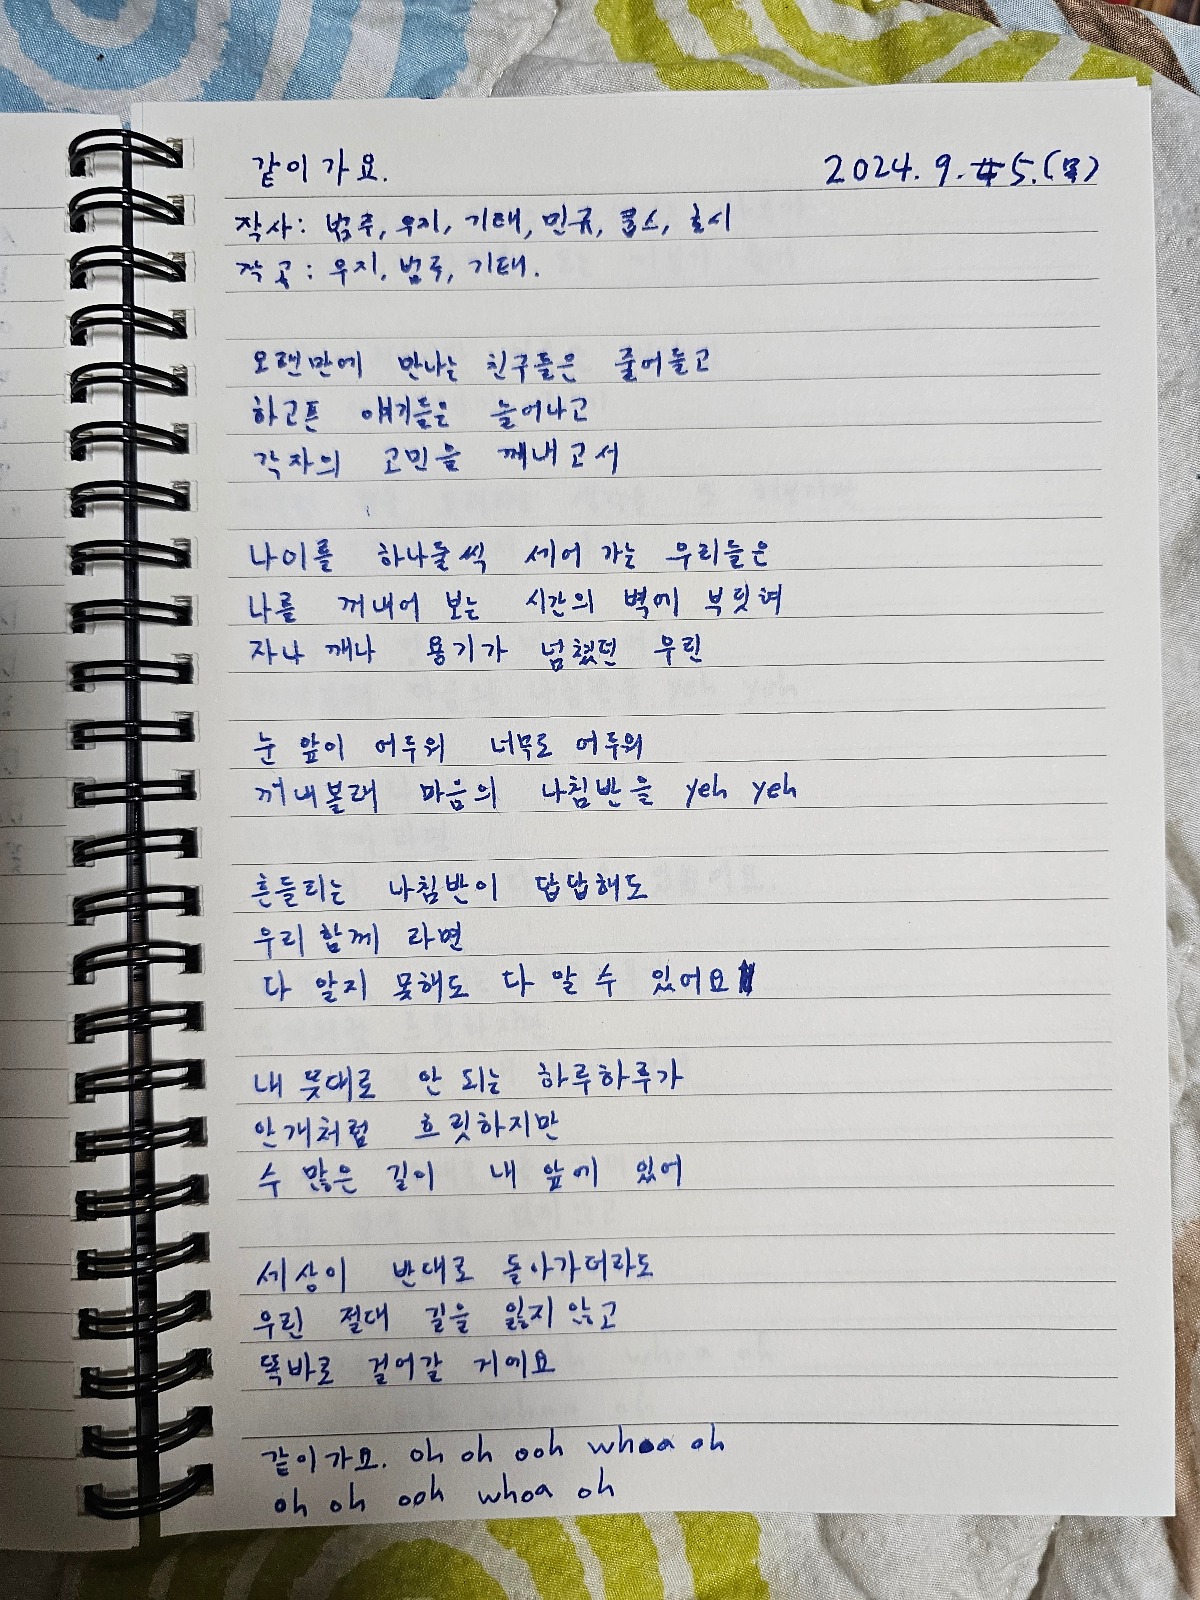 같이 가요. 2024. 9. 5.(목)
작사: 범주, 우지, 기태, 민규, 쿱스, 호시
작곡: 우지, 범주, 기태.
오랜만에 만나는 친구들은 줄어들고
하고픈 얘기들은 늘어나고
각자의 고민을 꺼내고서
나이를 하나둘씩 세어 가는 우리들은
나를 꺼내어 보는 시간의 벽에 부딪혀
자나 깨나 용기가 넘쳤던 우린
눈 앞이 어두워 너무도 어두워
꺼내볼래 마음의 나침반을 yeh yeh
흔들리는 나침반이 답답해도
우리 함께 라면
다 알지 못해도 다 알 수 있어요
내 뜻대로 안 되는 하루하루가
안개처럼 흐릿하지만
수 많은 길이 내 앞에 있어
세상이 반대로 돌아가더라도
우린 절대 길을 잃지 않고
똑바로 걸어갈 거에요
같이 가요. oh oh ooh whoa oh
oh oh ooh whoa oh